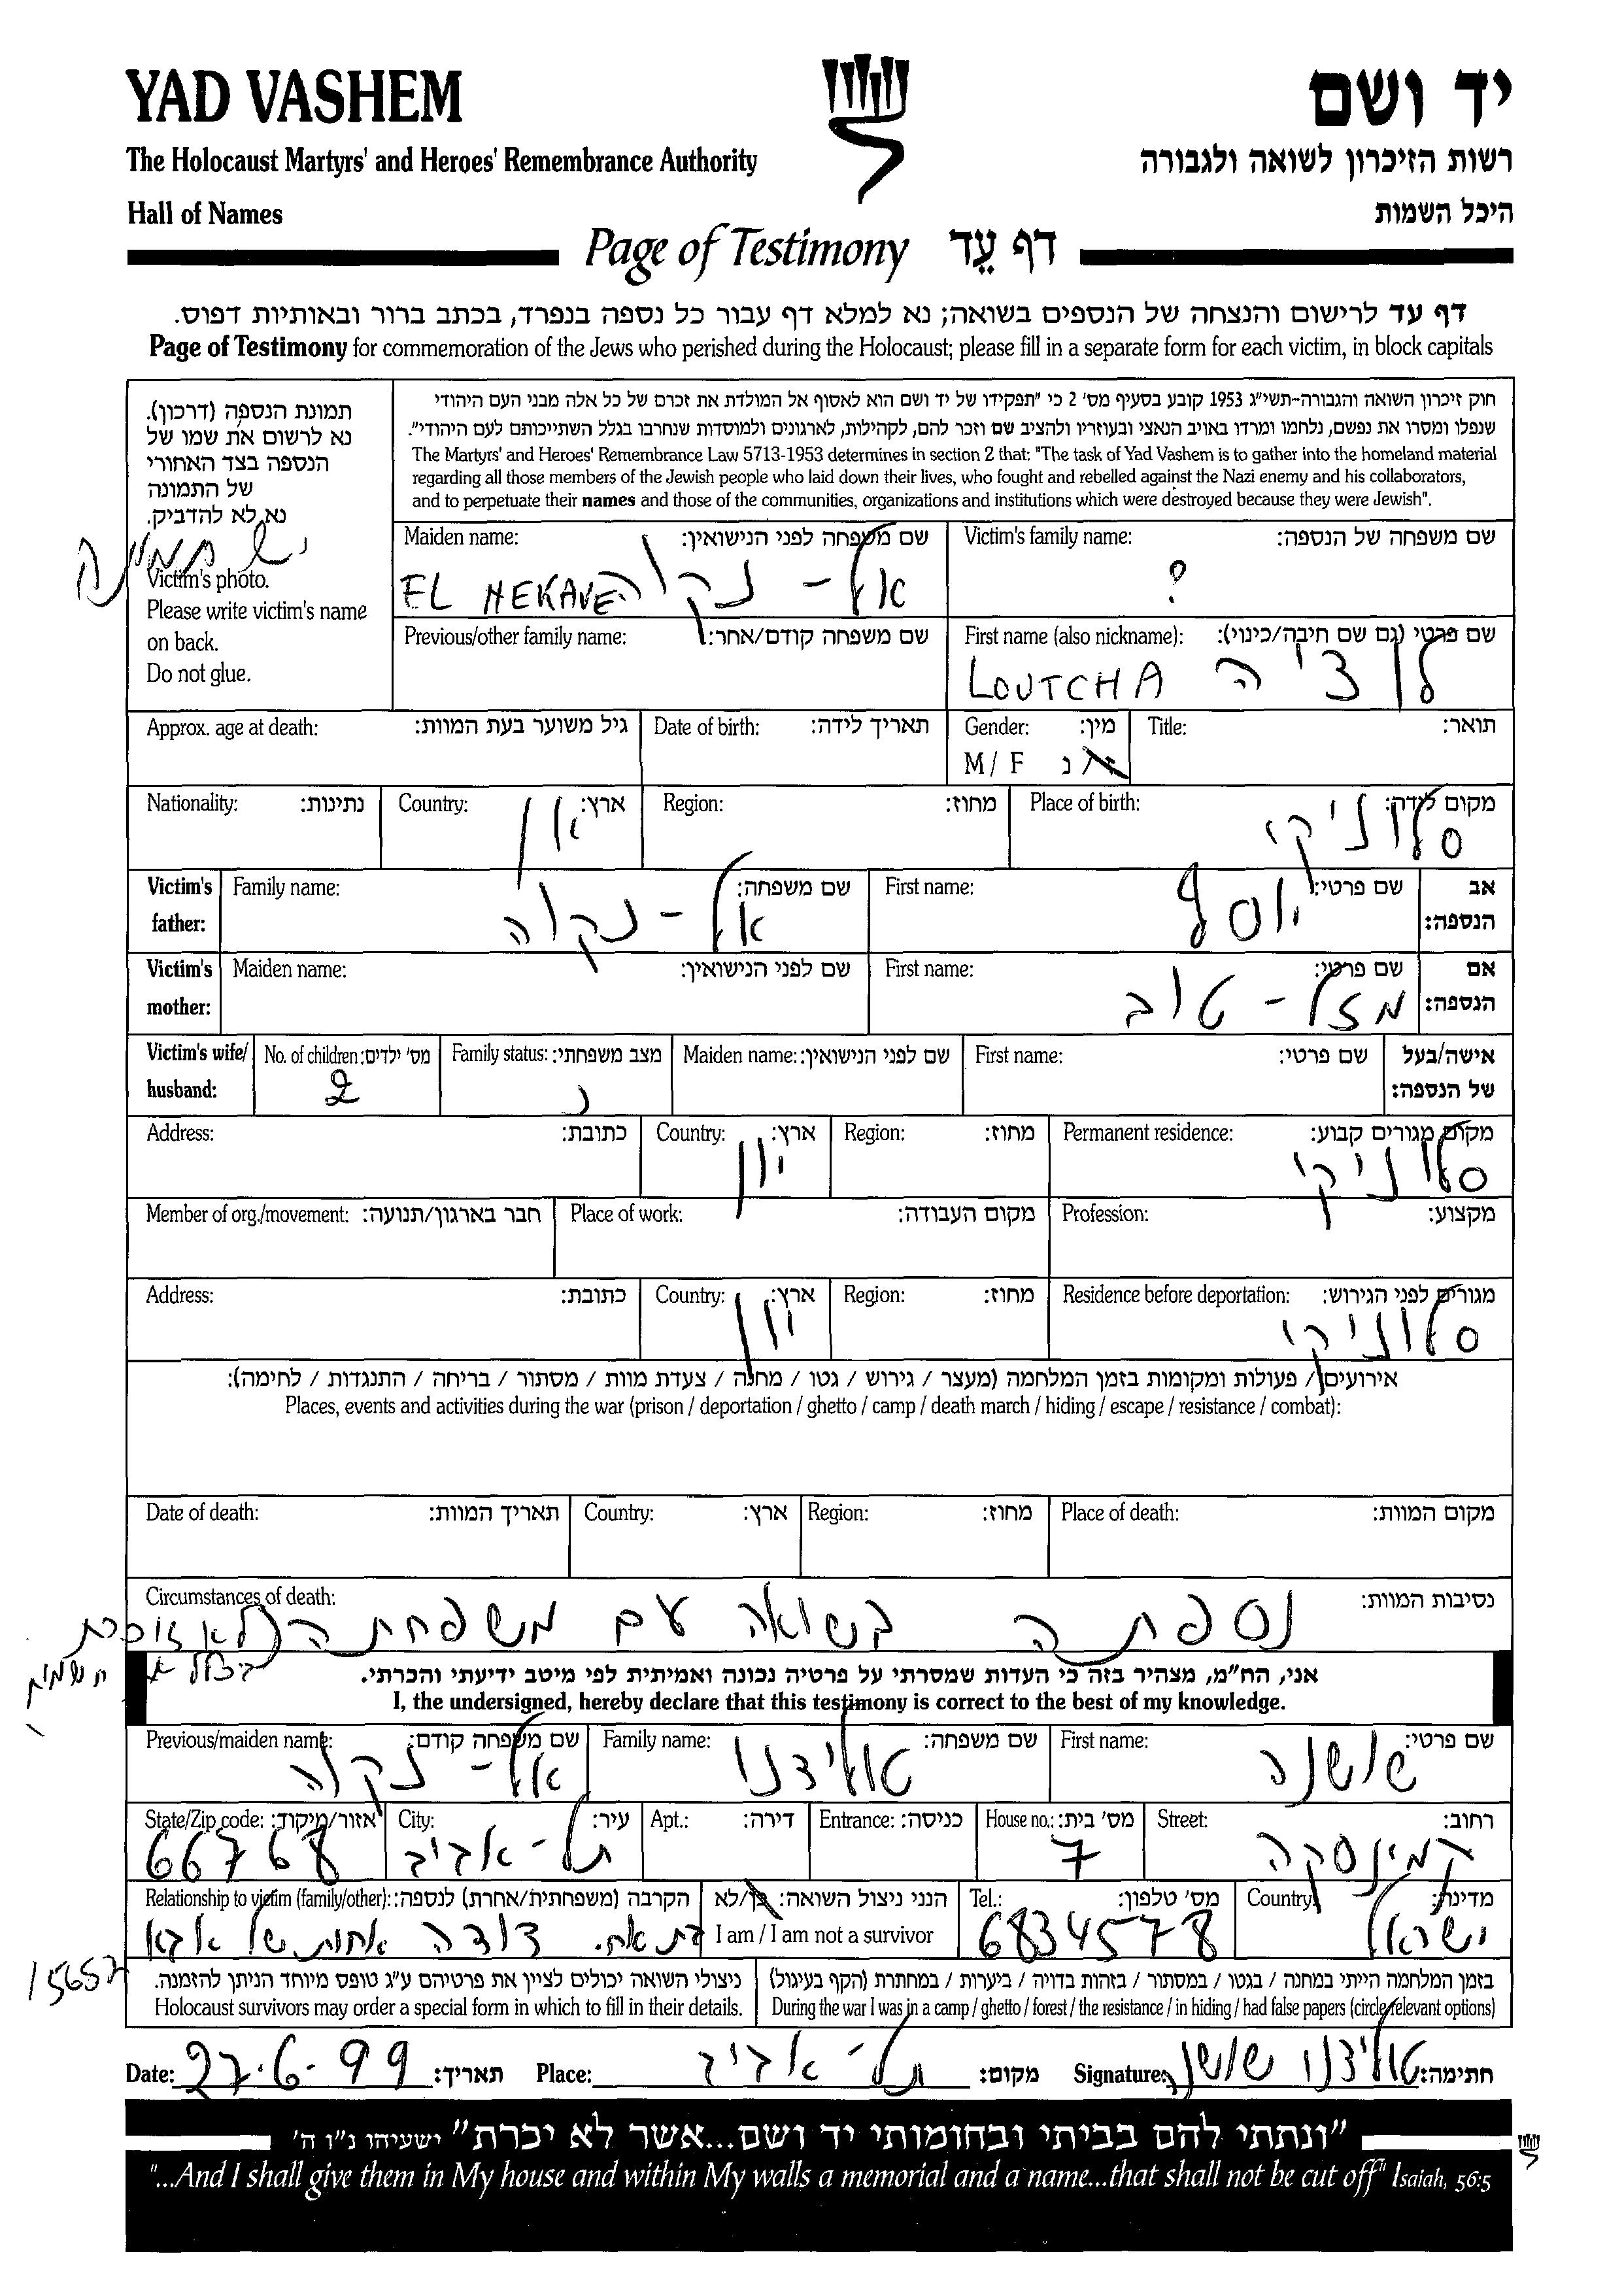 YAD VASHEM
יד ושם
The Holocaust Martyrs' and Heroes' Remembrance Authority
רשות הזיכרון לשואה ולגבורה
Hall of Names
היכל השמות
Page of Testimony דף עֵד
דף עד לרישום והנצחה של הנספים בשואה; נא למלא דף עבור כל נספה בנפרד, בכתב ברור ובאותיות דפוס.
Page of Testimony for commemoration of the Jews who perished during the Holocaust; please fill in a separate form for each victim, in block capitals
תמונת הנספה (דרכון).
נא לרשום את שמו של
הנספה בצד האחורי
של התמונה
נא לא להדביק.
יש תמונה
Victim's photo.
Please write victim's name
on back.
Do not glue.
חוק זיכרון השואה והגבורה-תשי"ג 1953 קובע בסעיף מס' 2 כי "תפקידו של יד ושם הוא לאסוף אל המולדת את זכרם של כל אלה מבני העם היהודי
שנפלו ומסרו את נפשם, נלחמו ומרדו באויב הנאצי ובעוזריו ולהציב שם וזכר להם, לקהילות, לארגונים ולמוסדות שנחרבו בגלל השתייכותם לעם היהודי".
The Martyrs' and Heroes' Remembrance Law 5713-1953 determines in section 2 that: "The task of Yad Vashem is to gather into the homeland material
regarding all those members of the Jewish people who laid down their lives, who fought and rebelled against the Nazi enemy and his collaborators,
and to perpetuate their names and those of the communities, organizations and institutions which were destroyed because they were Jewish".
Victim's family name: שם משפחה של הנספה:
?
Maiden name: שם משפחה לפני הנישואין:
EL NEKAVE אל-נקוה
First name (also nickname): שם פרטי (גם שם חיבה/כינוי):
LOUTCHA לוציה
Previous/other family name: שם משפחה קודם/אחר:
Title: תואר:
Gender: מין:
M / F ז/נ
Date of birth: תאריך לידה:
Approx. age at death: גיל משוער בעת המוות:
Place of birth: מקום לידה:
סלוניקי
Region: מחוז:
Country: ארץ:
יון
Nationality: נתינות:
Victim's father: אב הנספה:
First name: שם פרטי:
יוסף
Family name: שם משפחה:
אל-נקוה
Victim's mother: אם הנספה:
First name: שם פרטי:
מזל-טוב
Maiden name: שם לפני הנישואין:
Victim's wife/husband: אישה/בעל של הנספה:
First name: שם פרטי:
Maiden name: שם לפני הנישואין:
Family status: מצב משפחתי:
נ
No. of children: מס' ילדים:
2
Permanent residence: מקום מגורים קבוע:
סלוניקי
Region: מחוז:
Country: ארץ:
יון
Address: כתובת:
Profession: מקצוע:
Place of work: מקום העבודה:
Member of org./movement: חבר בארגון/תנועה:
Residence before deportation: מגורים לפני הגירוש:
סלוניקי
Region: מחוז:
Country: ארץ:
יון
Address: כתובת:
אירועים / פעולות ומקומות בזמן המלחמה (מעצר / גירוש / גטו / מחנה / צעדת מוות / מסתור / בריחה / התנגדות / לחימה):
Places, events and activities during the war (prison / deportation / ghetto / camp / death march / hiding / escape / resistance / combat):
Place of death: מקום המוות:
Region: מחוז:
Country: ארץ:
Date of death: תאריך המוות:
Circumstances of death: נסיבות המוות:
נספתה בשואה עם משפחתה (לא זוכרת
השמות)
אני, הח"מ, מצהיר בזה כי העדות שמסרתי על פרטיה נכונה ואמיתית לפי מיטב ידיעתי והכרתי.
I, the undersigned, hereby declare that this testimony is correct to the best of my knowledge.
First name: שם פרטי:
שושנה
Family name: שם משפחה:
טולידנו
Previous/maiden name: שם משפחה קודם:
אל-נקוה
Street: רחוב:
קמינסקה
House no.: מס' בית:
7
Entrance: כניסה:
Apt.: דירה:
City: עיר:
תל-אביב
State/Zip code: אזור/מיקוד:
66768
Country: מדינה:
ישראל
Tel.: מס' טלפון:
6834578
הנני ניצול השואה: כן/לא
I am / I am not a survivor
Relationship to victim (family/other): הקרבה (משפחתית/אחרת) לנספה:
בת אח. דודה אחות של אבא
15652
בזמן המלחמה הייתי במחנה / בגטו / במסתור / בזהות בדויה / ביערות / במחתרת (הקף בעיגול)
During the war I was in a camp / ghetto / forest / the resistance / in hiding / had false papers (circle relevant options)
ניצולי השואה יכולים לציין את פרטיהם ע"ג טופס מיוחד הניתן להזמנה.
Holocaust survivors may order a special form in which to fill in their details.
Date: 27.6.99 תאריך:
Place: תל-אביב מקום:
Signature: טולידנו שושנה חתימה:
"ונתתי להם בביתי ובחומותי יד ושם...אשר לא יכרת" ישעיהו נ"ו ה'
"...And I shall give them in My house and within My walls a memorial and a name...that shall not be cut off" Isaiah, 56:5